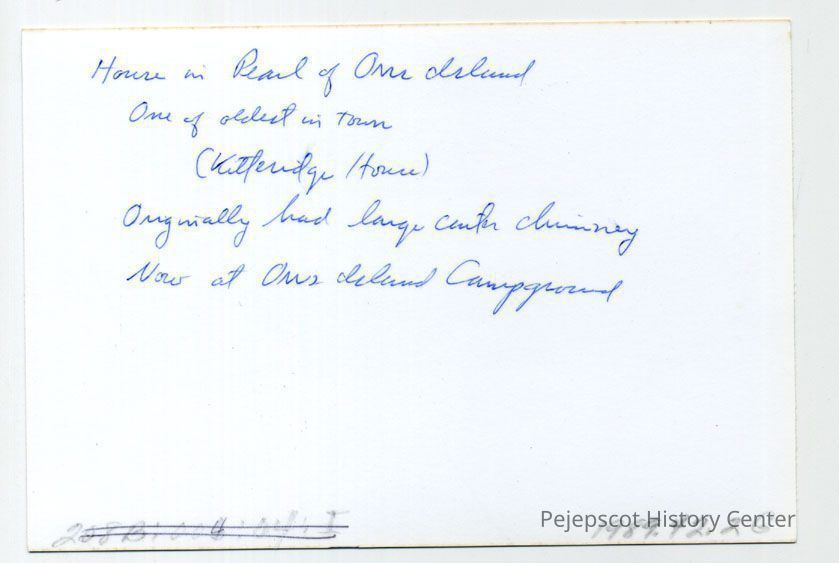 House in Pearl of Orrs Island
One of oldest in town
(Kitteridge House)
Originally had large center chimney
Now at Orrs Island Campground
Pejepscot History Center